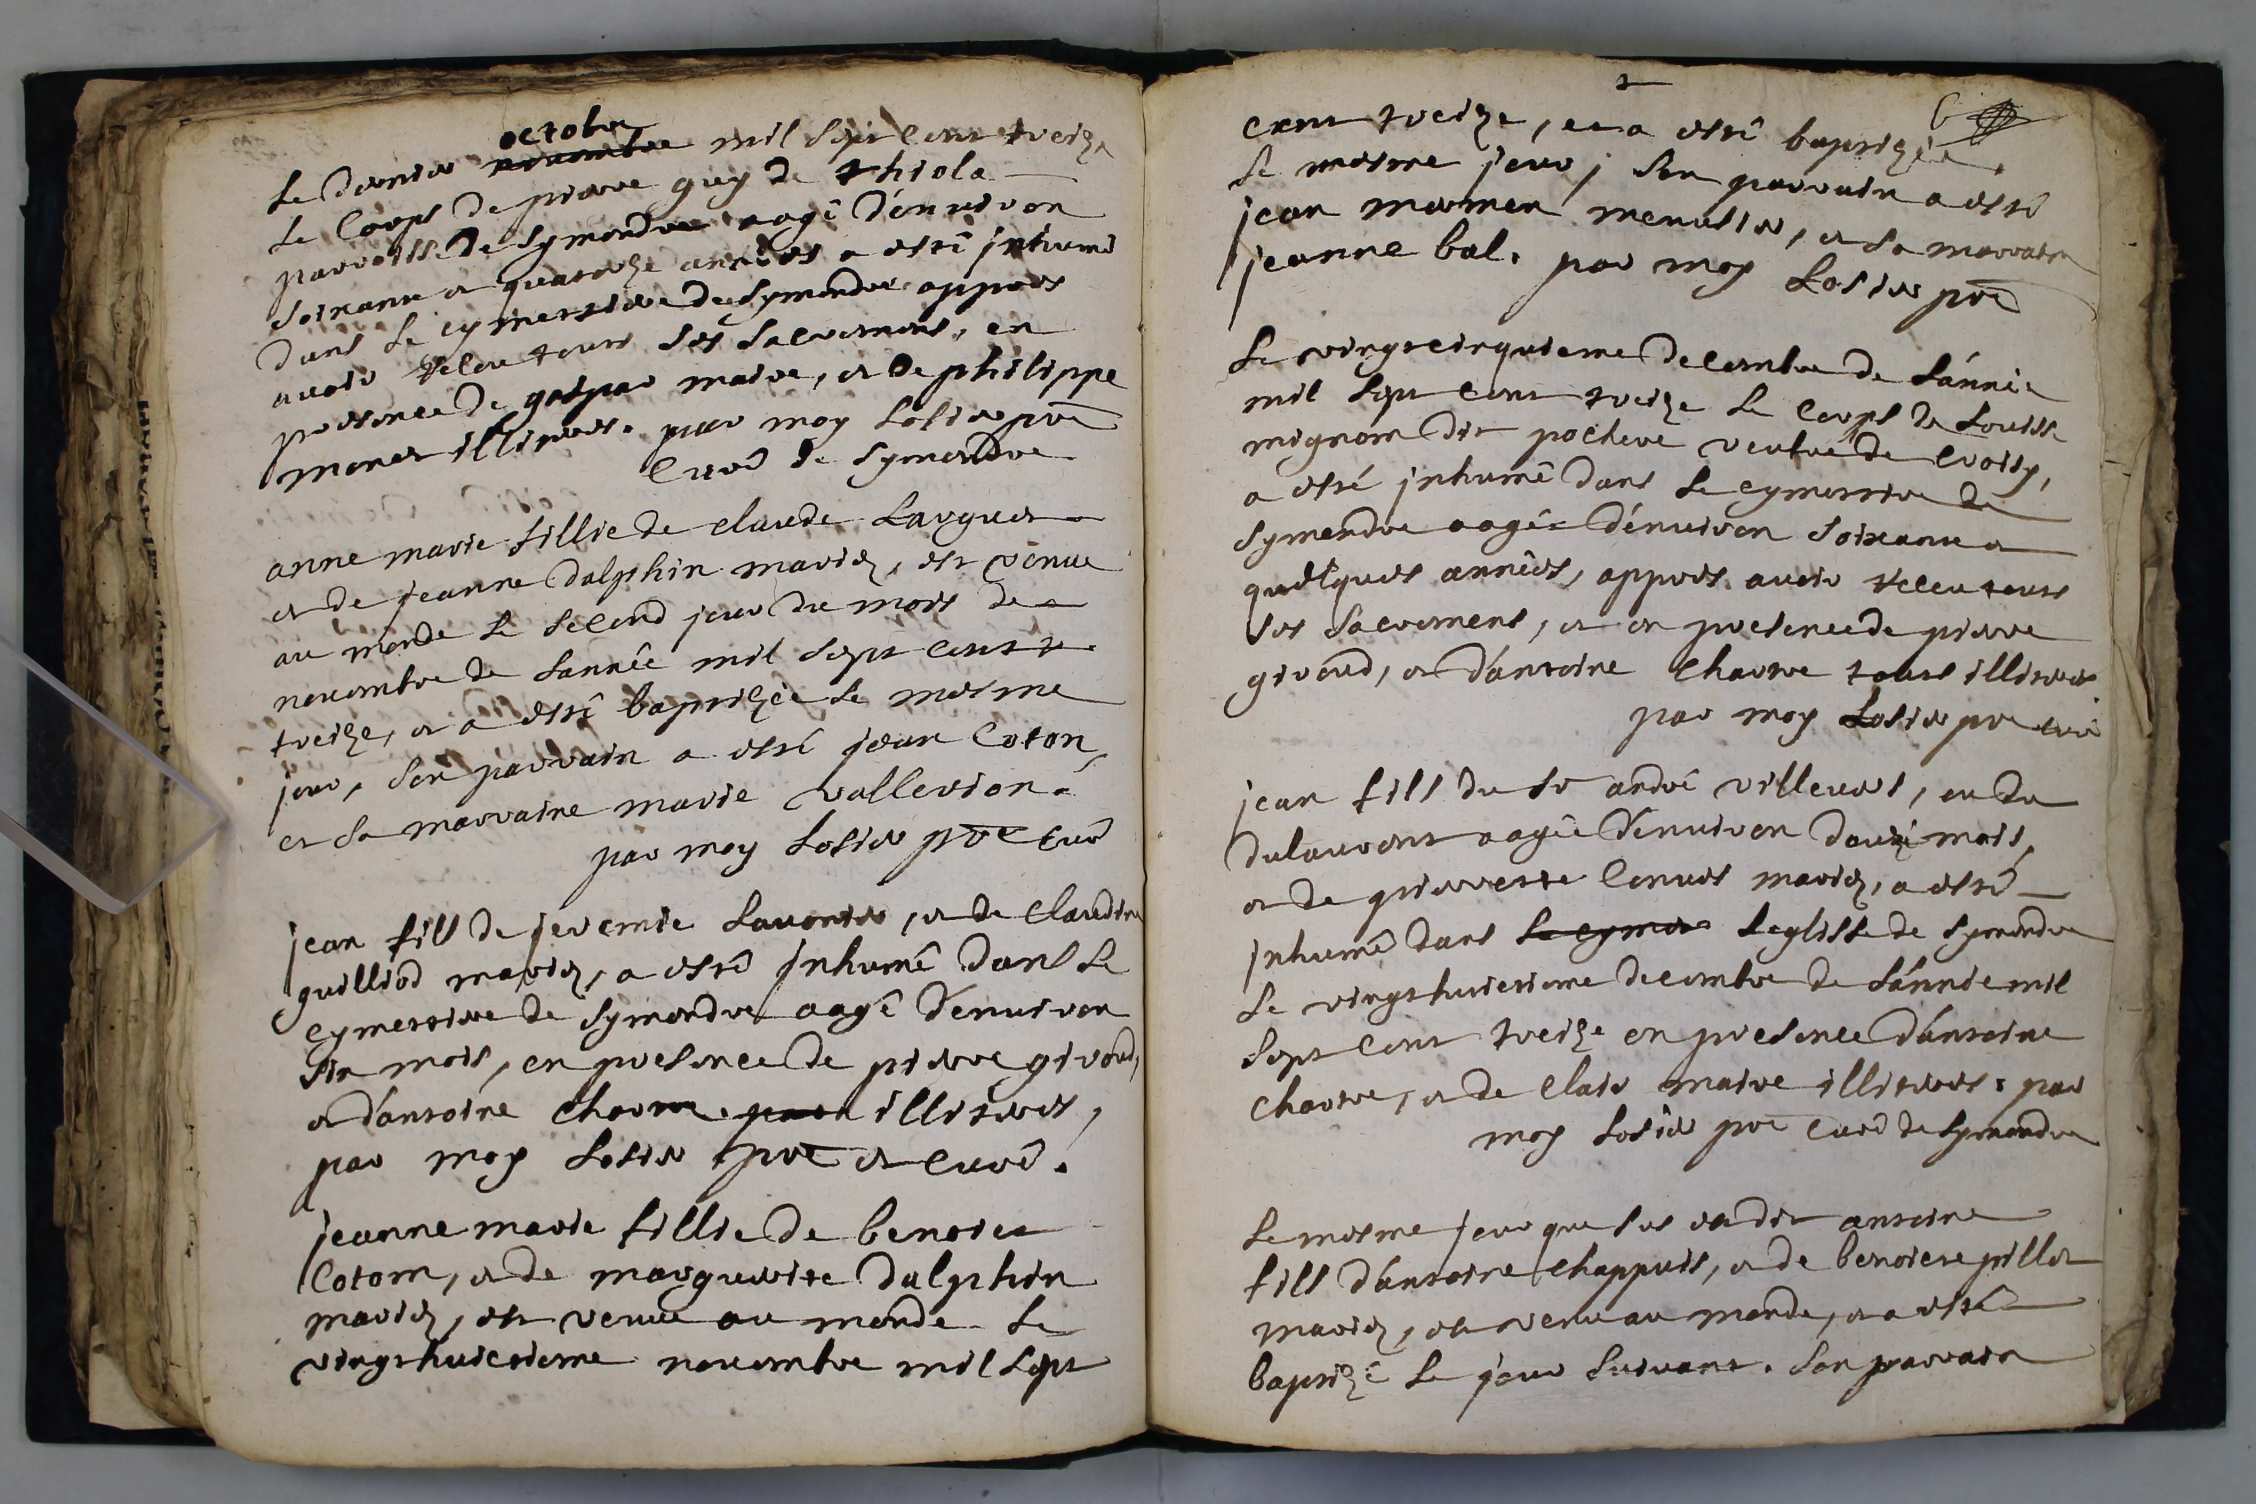 octobre
Le dernier novembre mil sept cent treize
Le Corps de pierre guy de thiola
parroisse de Symandre aagé d'enuiron
soixante et quatorze années a esté jnhumé
dans le cymettiere de Symandre appres
auoir receu tous ses sacremens, en
presence de gaspar maire, et de philippe
monet illiteres. par moy Losier pre
Curé de Symandre
anne marie fillie de claude Larguet
et de jeanne dalphin mariez, est venue
au monde le second jour du mois de
nouembre de l'année mil sept cent
treize, et a esté baptizée le mesme
jour, son parrain a esté jean Coton,
et sa marraine marie vallerion.
par moy Losier pre Curé
jean fils de jeremie Lauenir, et de Claudine
guilliod mariez, a esté jnhumé dans le
cymettiere de Symandre aagé d'enuiron
six mois, en presence de pierre giroud,
et d'antoine Charme illiteres,
par moy Losier pre et Curé.
jeanne marie fillie de benoict
Cotom, et de marguerite dalphin
mariez, est venue au monde le
vingthuictieme nouembre mil sept
6
cent treize, et a esté baptizée
le mesme jour, son parrain a esté
jean mermen menusier, et sa marraine
jeanne bal. par moy Losier pre
Le vingtcinquieme decembre de l'année
mil sept cent treize le Corps de Louise
mignom dit pochere veufue de Croisy,
a esté jnhumé dans le cymettiere de
Symandre aagée d'enuiron soixante et
quelques années, appres auoir receu tous
ses sacremens, et en presence de pierre
giroud, et d'antoine Charme tous illiteres
par moy Losier pre curé
jean fils du sr andré villeuert, ou de
dulaurent aagé d'enuiron douze mois,
et de pierrette Conuers mariez, a esté
jnhumé dans le cyme leglisse de Symandre
le vingthuictieme decembre de l'année mil
sept cent treize en presence d'antoine
Charme, et de Clair maire illiteres. par
moy Losier pre Curé de Symandre
Le mesme jour que sus est dit antoine
fils d'antoine Chappuis, et de benoiste pillot
mariez, est venu au monde, et a esté
baptizé le jour suiuant. son parrain